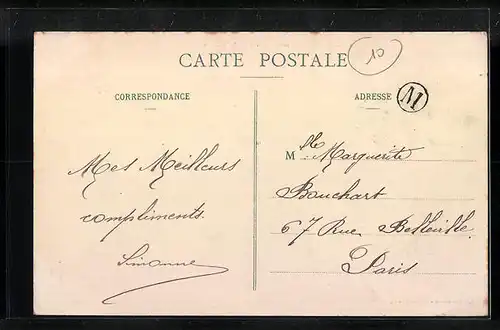 10
CARTE POSTALE
CORRESPONDANCE
ADRESSE
M
Mes Meilleurs
compliments.
Simonne
Mlle Marguerite
Bouchart
67 Rue Belleville
Paris